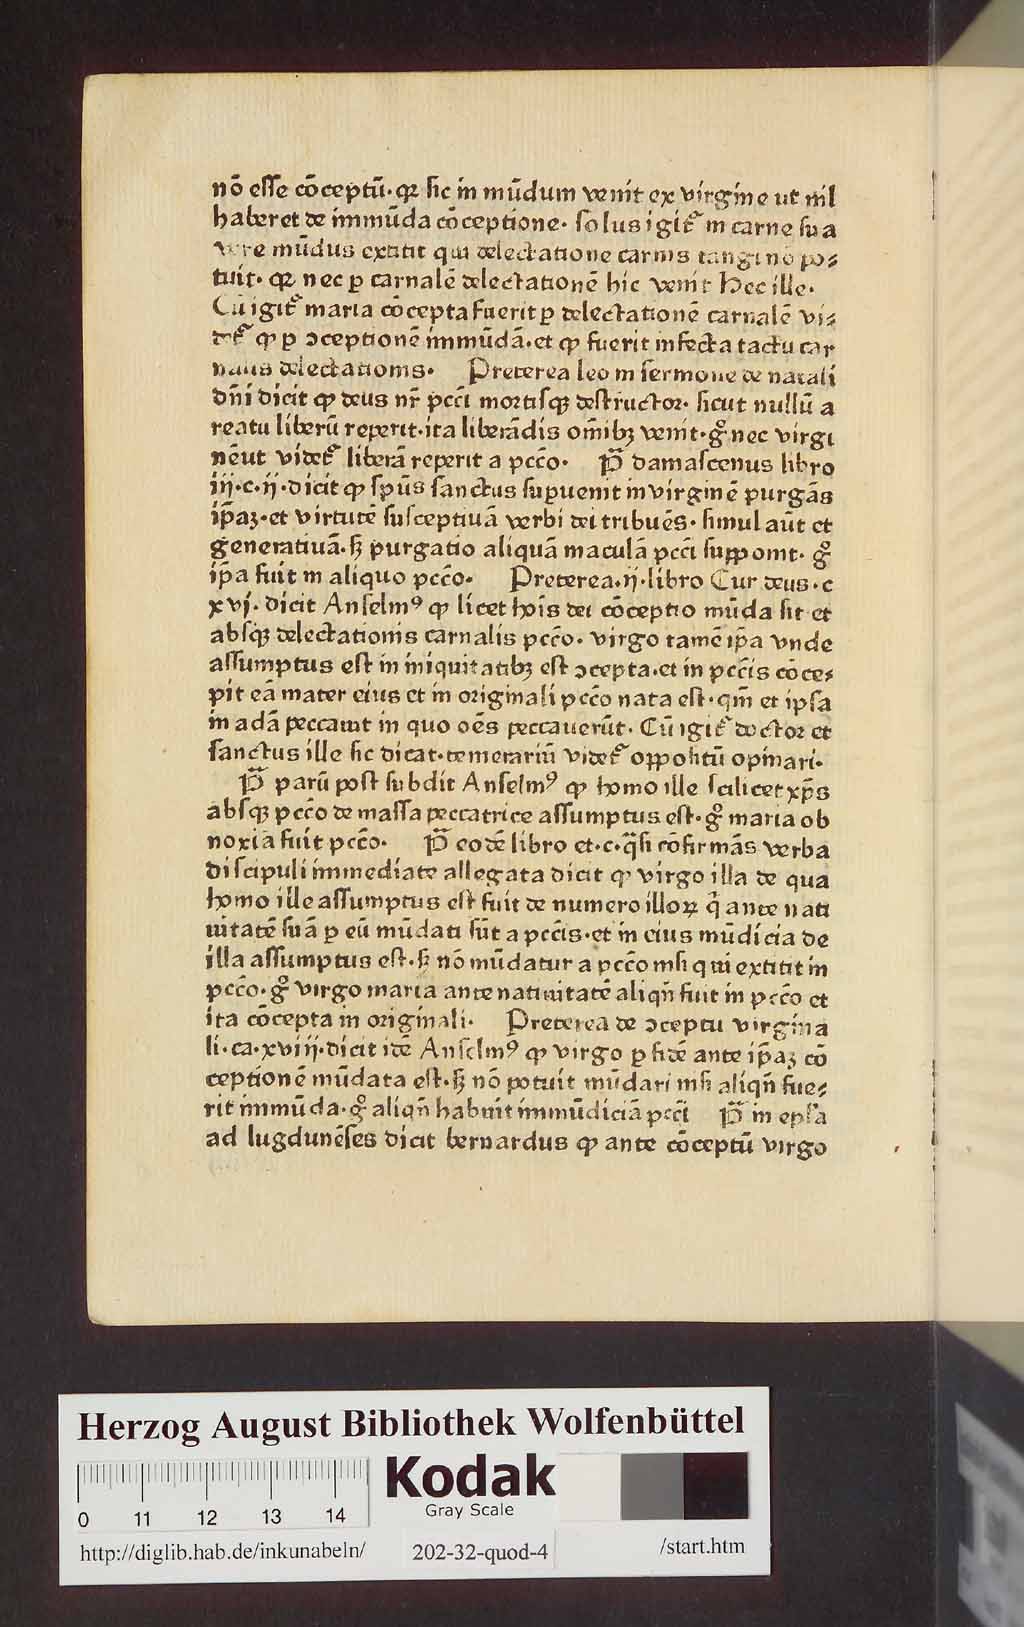 nō esse cōceptū· qꝛ sic in mūdum venit ex virgine ut nil
haberet de immūda cōceptione· solus igit̄ in carne sua
vere mūdus extitit qui delectatione carnis tangi nō po⸗
tuit· qꝛ nec ꝑ carnalē delectationē hic venit Hec ille·
Cū igit̄ maria cōcepta fuerit ꝑ delectationē carnalē vi⸗
det̄ ꝙ ꝑ ↄceptionē immūdā· et ꝙ fuerit infecta tactu car
nalis delectationis· Preterea leo in sermone de natali
dn̄i dicit ꝙ deus nr̄ pcc̄i mortisqꝫ destructor· sicut nullū a
reatu liberū reperit· ita liberādis om̄ibꝫ venit· gͦ nec virgi
nēut videt̄ liberā reperit a pcc̄o· P̄ damascenus libro
iij·c·ij·dicit ꝙ sp̄us sanctus supuenit in virginē purgās
ip̄aꝫ·et virtutē susceptiuā verbi dei tribuēs· simul aūt et
generatiuā· sꝫ purgatio aliquā maculā pcc̄i supponit· gͦ
ip̄a fuit in aliquo pcc̄o· Preterea·ij·libro Cur deus·c
xvj· dicit Anselmꝰ ꝙ licet hoīs dei cōceptio mūda sit et
absqꝫ delectationis carnalis pcc̄o· virgo tamē ip̄a vnde
assumptus est in iniquitatibꝫ est ↄcepta·et in pcc̄is cōce⸗
pit eā mater eius et in originali pcc̄o nata est· qm̄ et ipsa
in adā peccauit in quo oēs peccauerūt· Cū igit̄ doctor et
sanctus ille sic dicat· temerariū videt̄ oppositū opinari·
P̄ parū post subdit Anselmꝰ ꝙ homo ille scilicet xp̄s
absqꝫ pcc̄o de massa peccatrice assumptus est· gͦ maria ob
noxia fuit pcc̄o· P̄ eodē libro et·c·q̄si cōfirmās verba
discipuli immediate allegata dicit ꝙ virgo illa de qua
homo ille assumptus est fuit de numero illoꝝ q̄ ante nati
uitatē suā ꝑ eū mūdati sūt a pcc̄is· et in eius mūdicia de
illa assumptus est· sꝫ nō mūdatur a pcc̄o nisi qui extitit in
pcc̄o· gͦ virgo maria ante natiuitatē aliqn̄ fuit in pcc̄o et
ita cōcepta in originali· Preterea de ↄceptu virgina
li·ca·xviij·dicit idē Anselmꝰ ꝙ virgo ꝑ fidē ante ip̄aꝫ cō
ceptionē mūdata est· sꝫ nō potuit mūdari nisi aliqn̄ fue⸗
rit immūda· gͦ aliqn̄ habuit immūdiciā pcc̄i P̄ in epl̄a
ad lugdunēses dicit bernardus ꝙ ante cōceptū virgo
Herzog August Bibliothek Wolfenbüttel
Kodak
Gray Scale
0 11 12 13 14
http://diglib.hab.de/inkunabeln/ 202-32-quod-4 /start.htm